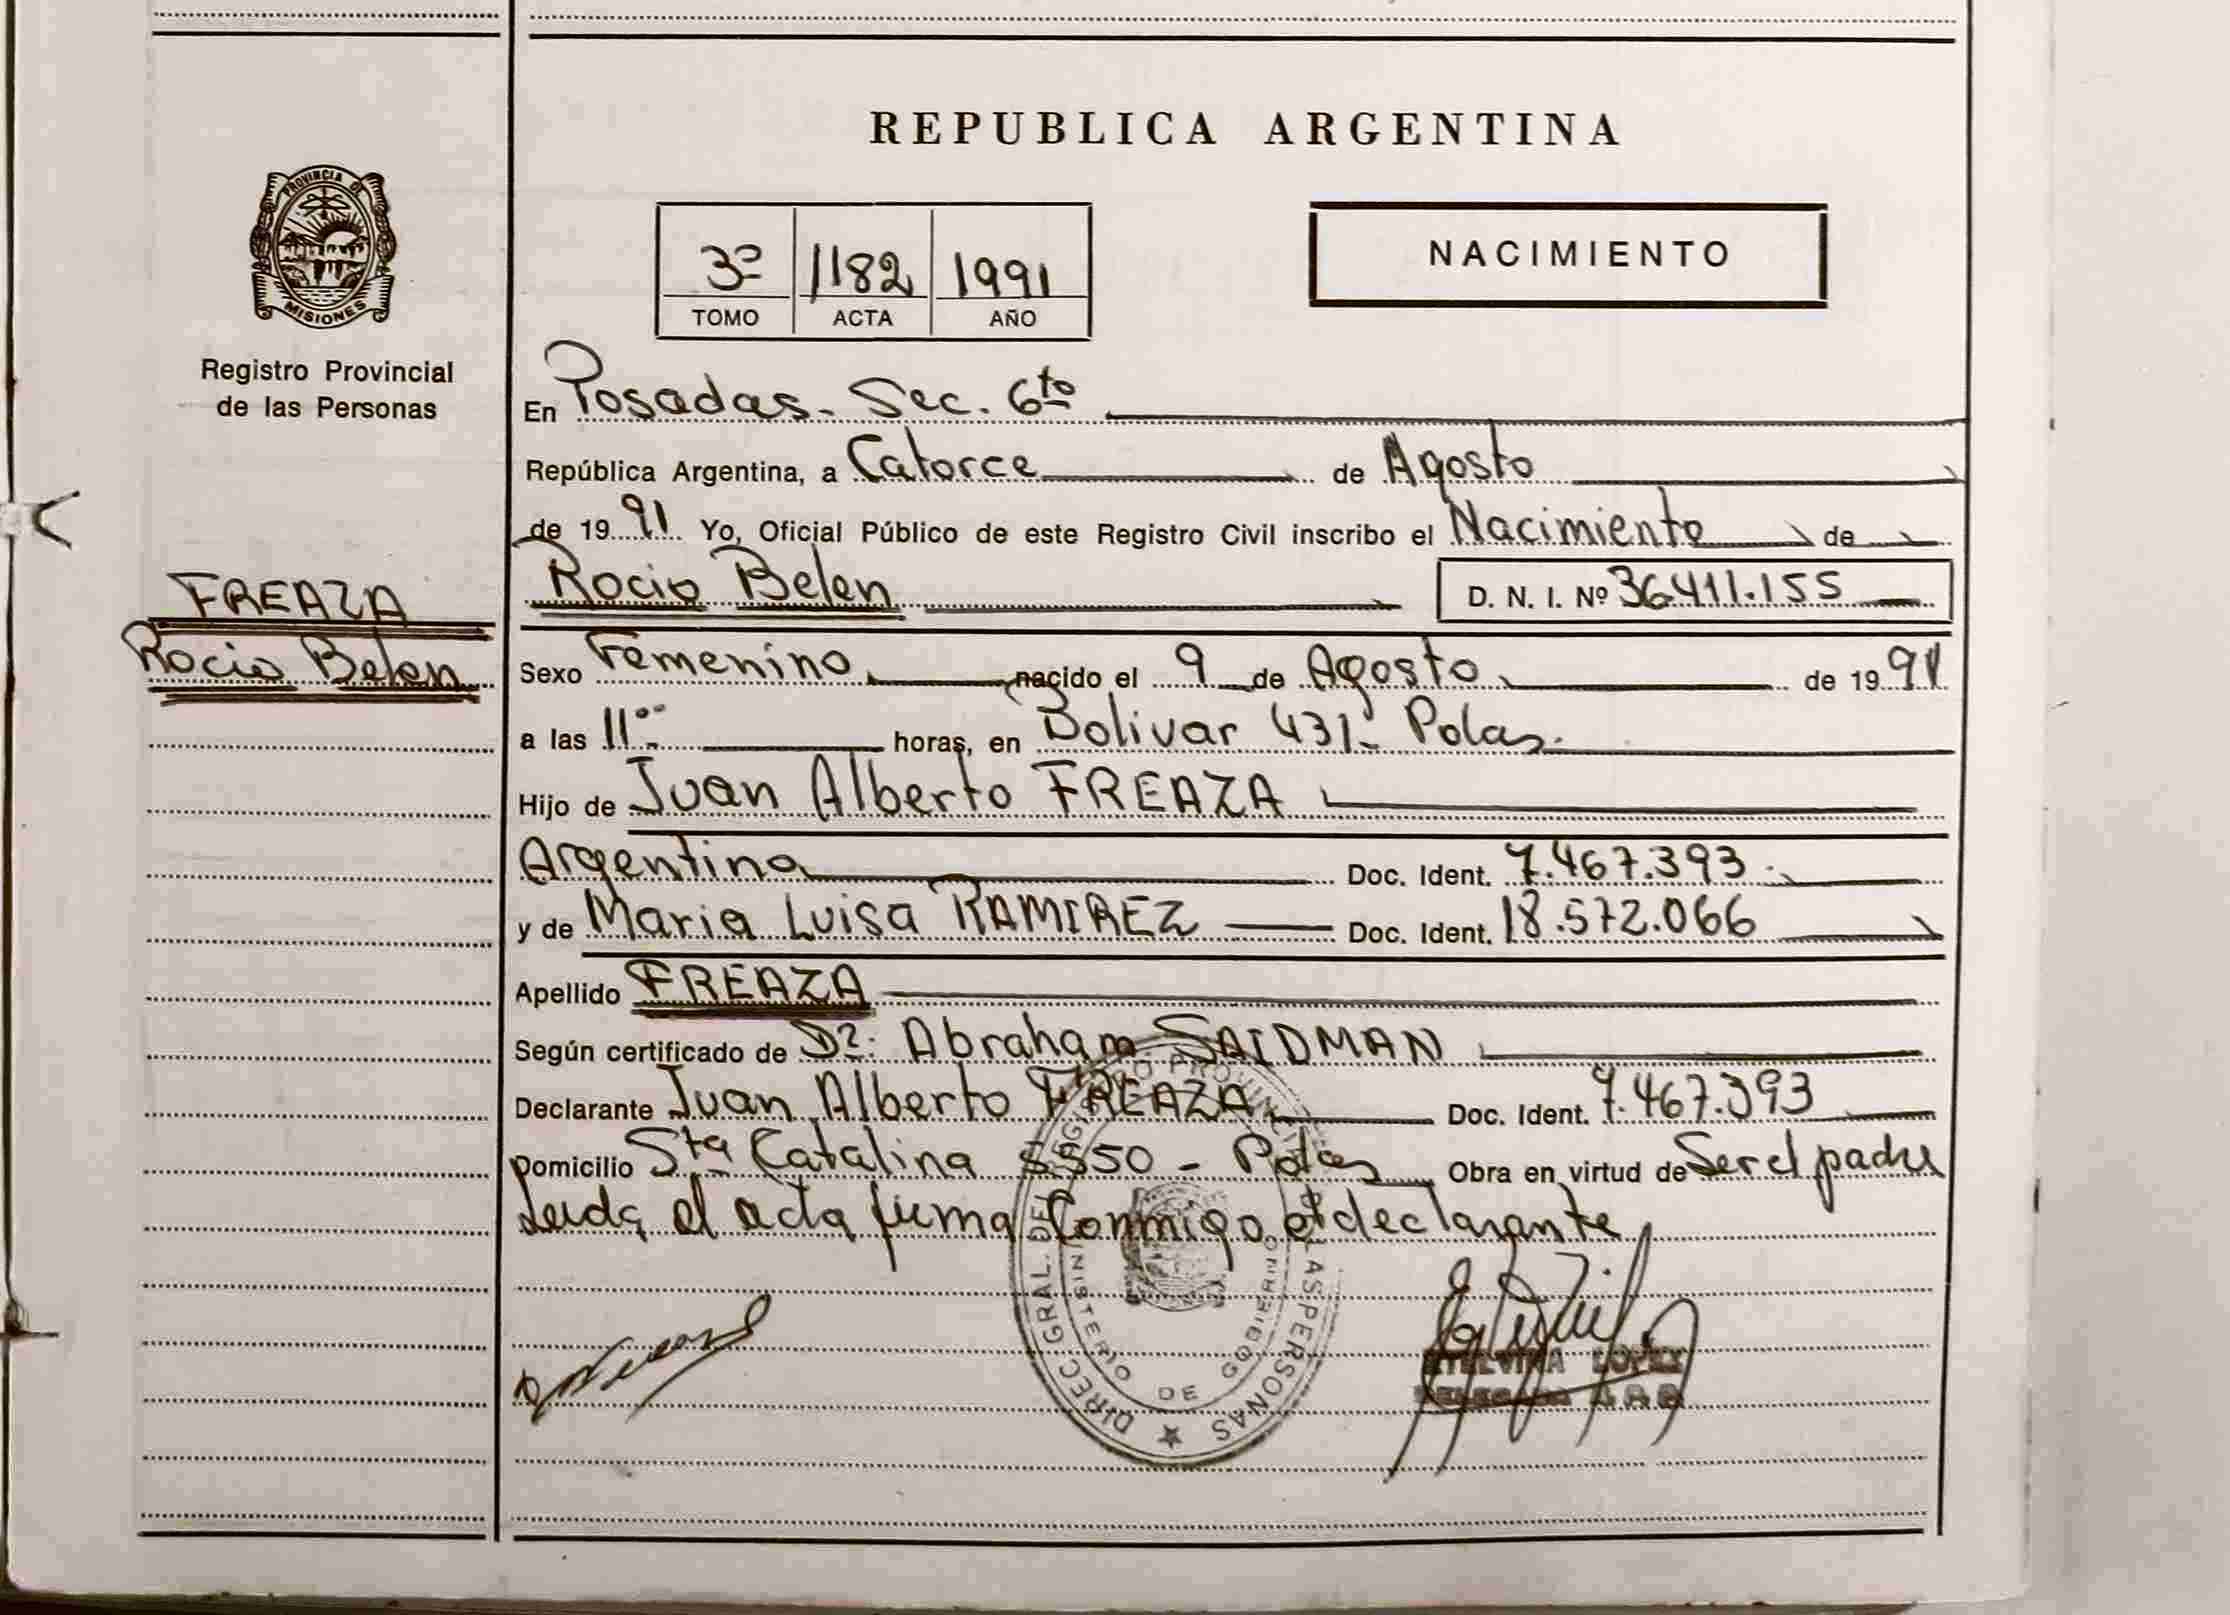 REPUBLICA ARGENTINA
PROVINCIA DE
MISIONES
Registro Provincial
de las Personas
NACIMIENTO
3º 1182 1991
TOMO ACTA AÑO
En Posadas - Sec. 6to
República Argentina, a Catorce de Agosto
de 1991 Yo, Oficial Público de este Registro Civil inscribo el Nacimiento de
Rocio Belen D. N. I. Nº 36411.155
FREAZA
Rocio Belen
Sexo Femenino nacido el 9 de Agosto de 1991
a las 11:00 horas, en Bolivar 431 - Pdas.
Hijo de Juan Alberto FREAZA
Argentina Doc. Ident. 7.467.393
y de Maria Luisa RAMIREZ Doc. Ident. 18.572.066
Apellido FREAZA
Según certificado de Dr. Abraham SAIDMAN
Declarante Juan Alberto FREAZA Doc. Ident. 7.467.393
Domicilio Sta Catalina 5550 - Pdas Obra en virtud de Ser el padre
Leida el acta firma conmigo el declarante
DIREC GRAL. DEL REGISTRO PROVINCIAL DE LAS PERSONAS
MINISTERIO DE GOBIERNO
ETELVINA LOPEZ